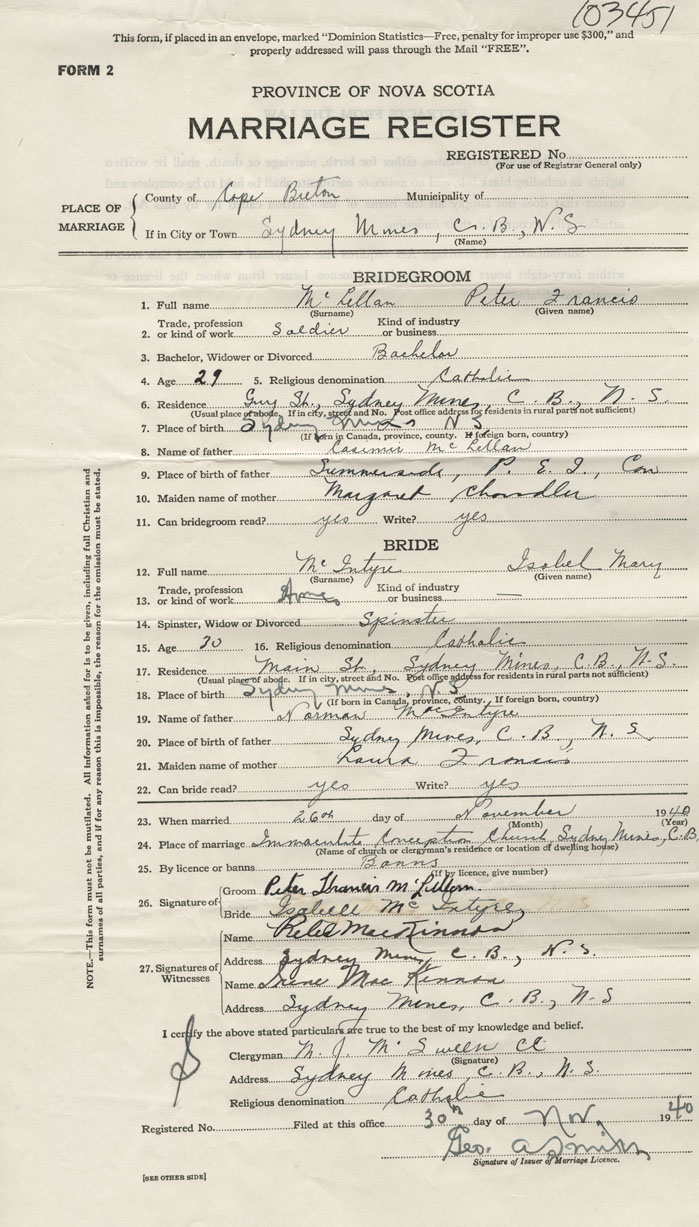 103451
This form, if placed in an envelope, marked "Dominion Statistics—Free, penalty for improper use $300," and
properly addressed will pass through the Mail "FREE".
FORM 2
PROVINCE OF NOVA SCOTIA
MARRIAGE REGISTER
REGISTERED No.
(For use of Registrar General only)
PLACE OF MARRIAGE
County of Cape Breton Municipality of
If in City or Town Sydney Mines, C.B., N.S.
(Name)
BRIDEGROOM
1. Full name McLellan Peter Francis
(Surname) (Given name)
2. Trade, profession or kind of work Soldier Kind of industry or business
3. Bachelor, Widower or Divorced Bachelor
4. Age 29 5. Religious denomination Catholic
6. Residence Guy St., Sydney Mines, C. B., N. S.
(Usual place of abode. If in city, street and No. Post office address for residents in rural parts not sufficient)
7. Place of birth Sydney Mines N S
(If born in Canada, province, county. If foreign born, country)
8. Name of father Casimir McLellan
9. Place of birth of father Summerside, P. E. I., Can
10. Maiden name of mother Margaret Chandler
11. Can bridegroom read? yes Write? yes
BRIDE
12. Full name McIntyre Isobel Mary
(Surname) (Given name)
13. Trade, profession or kind of work Kind of industry or business —
14. Spinster, Widow or Divorced Spinster
15. Age 30 16. Religious denomination Catholic
17. Residence Main St., Sydney Mines, C.B., N.S.
(Usual place of abode. If in city, street and No. Post office address for residents in rural parts not sufficient)
18. Place of birth Sydney Mines, N.S.
(If born in Canada, province, county. If foreign born, country)
19. Name of father Norman MacIntyre
20. Place of birth of father Sydney Mines, C. B., N. S.
21. Maiden name of mother Laura Francis
22. Can bride read? yes Write? yes
23. When married 26th day of November 1940
(Month) (Year)
24. Place of marriage Immaculate Conception Church, Sydney Mines, C.B.
(Name of church or clergyman's residence or location of dwelling house)
25. By licence or banns Banns
(If by licence, give number)
26. Signature of
Groom Peter Francis McLellan
Bride Isabell McIntyre
27. Signatures of Witnesses
Name Peter MacKinnon
Address Sydney Mines, C. B., N. S.
Name Irene MacKinnon
Address Sydney Mines, C. B., N. S
I certify the above stated particulars are true to the best of my knowledge and belief.
Clergyman M. J. McSween
(Signature)
Address Sydney Mines C. B., N. S.
Religious denomination Catholic
Registered No. Filed at this office 30th day of Nov. 1940
Geo. A Smith
Signature of Issuer of Marriage Licence.
[SEE OTHER SIDE]
NOTE.—This form must not be mutilated. All information asked for is to be given, including full Christian and
surnames of all parties, and if for any reason this is impossible, the reason for the omission must be stated.